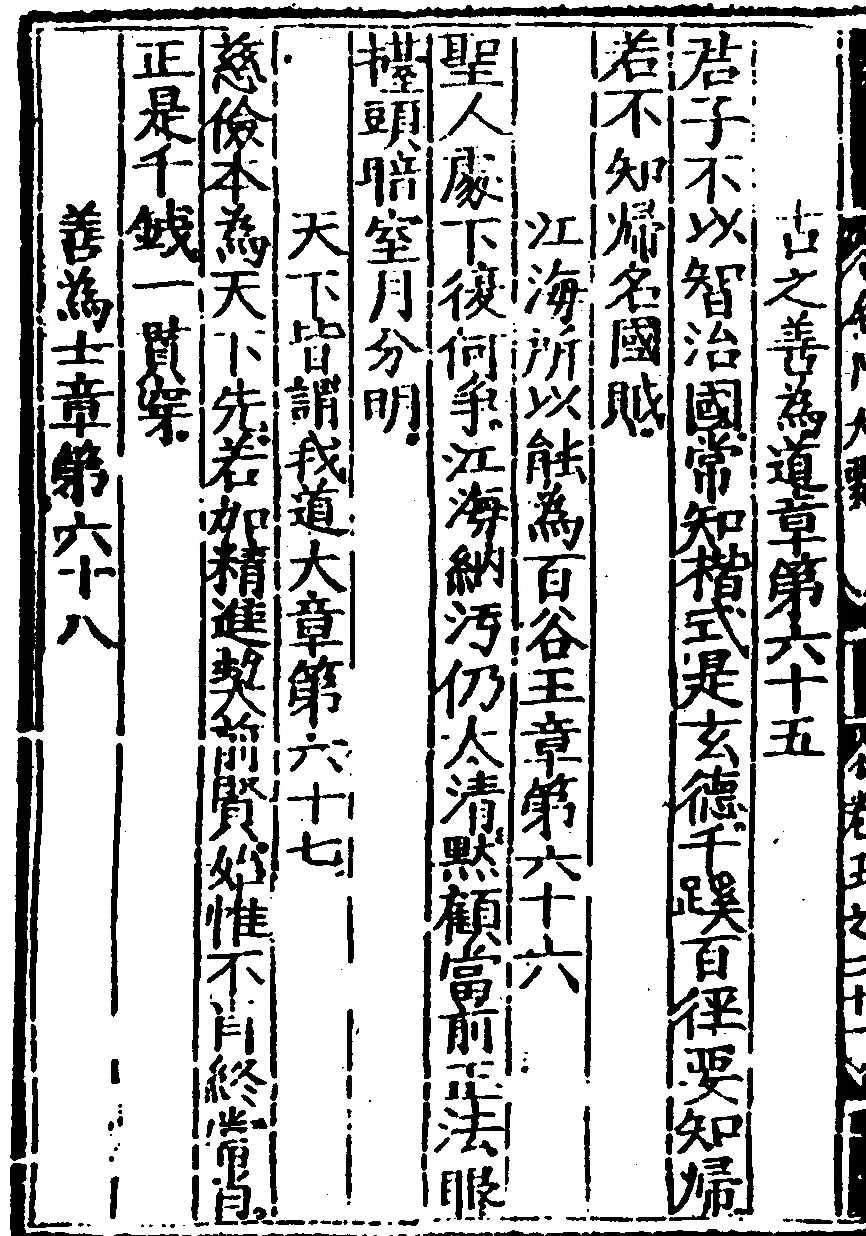 古之善為道章第六十五
君子不以智治國常知楷式是玄德千蹊百徑要知歸
若不知歸名國賊
江海所以能為百谷王章第六十六
聖人處下復何爭江海納汚仍太清默顧當前正法眼
擡頭暗室月分明
天下皆謂我道大章第六十七
慈儉本為天下先若加精進契前賢始惟不肖終當肖
正是千錢一貫穿
善為士章第六十八